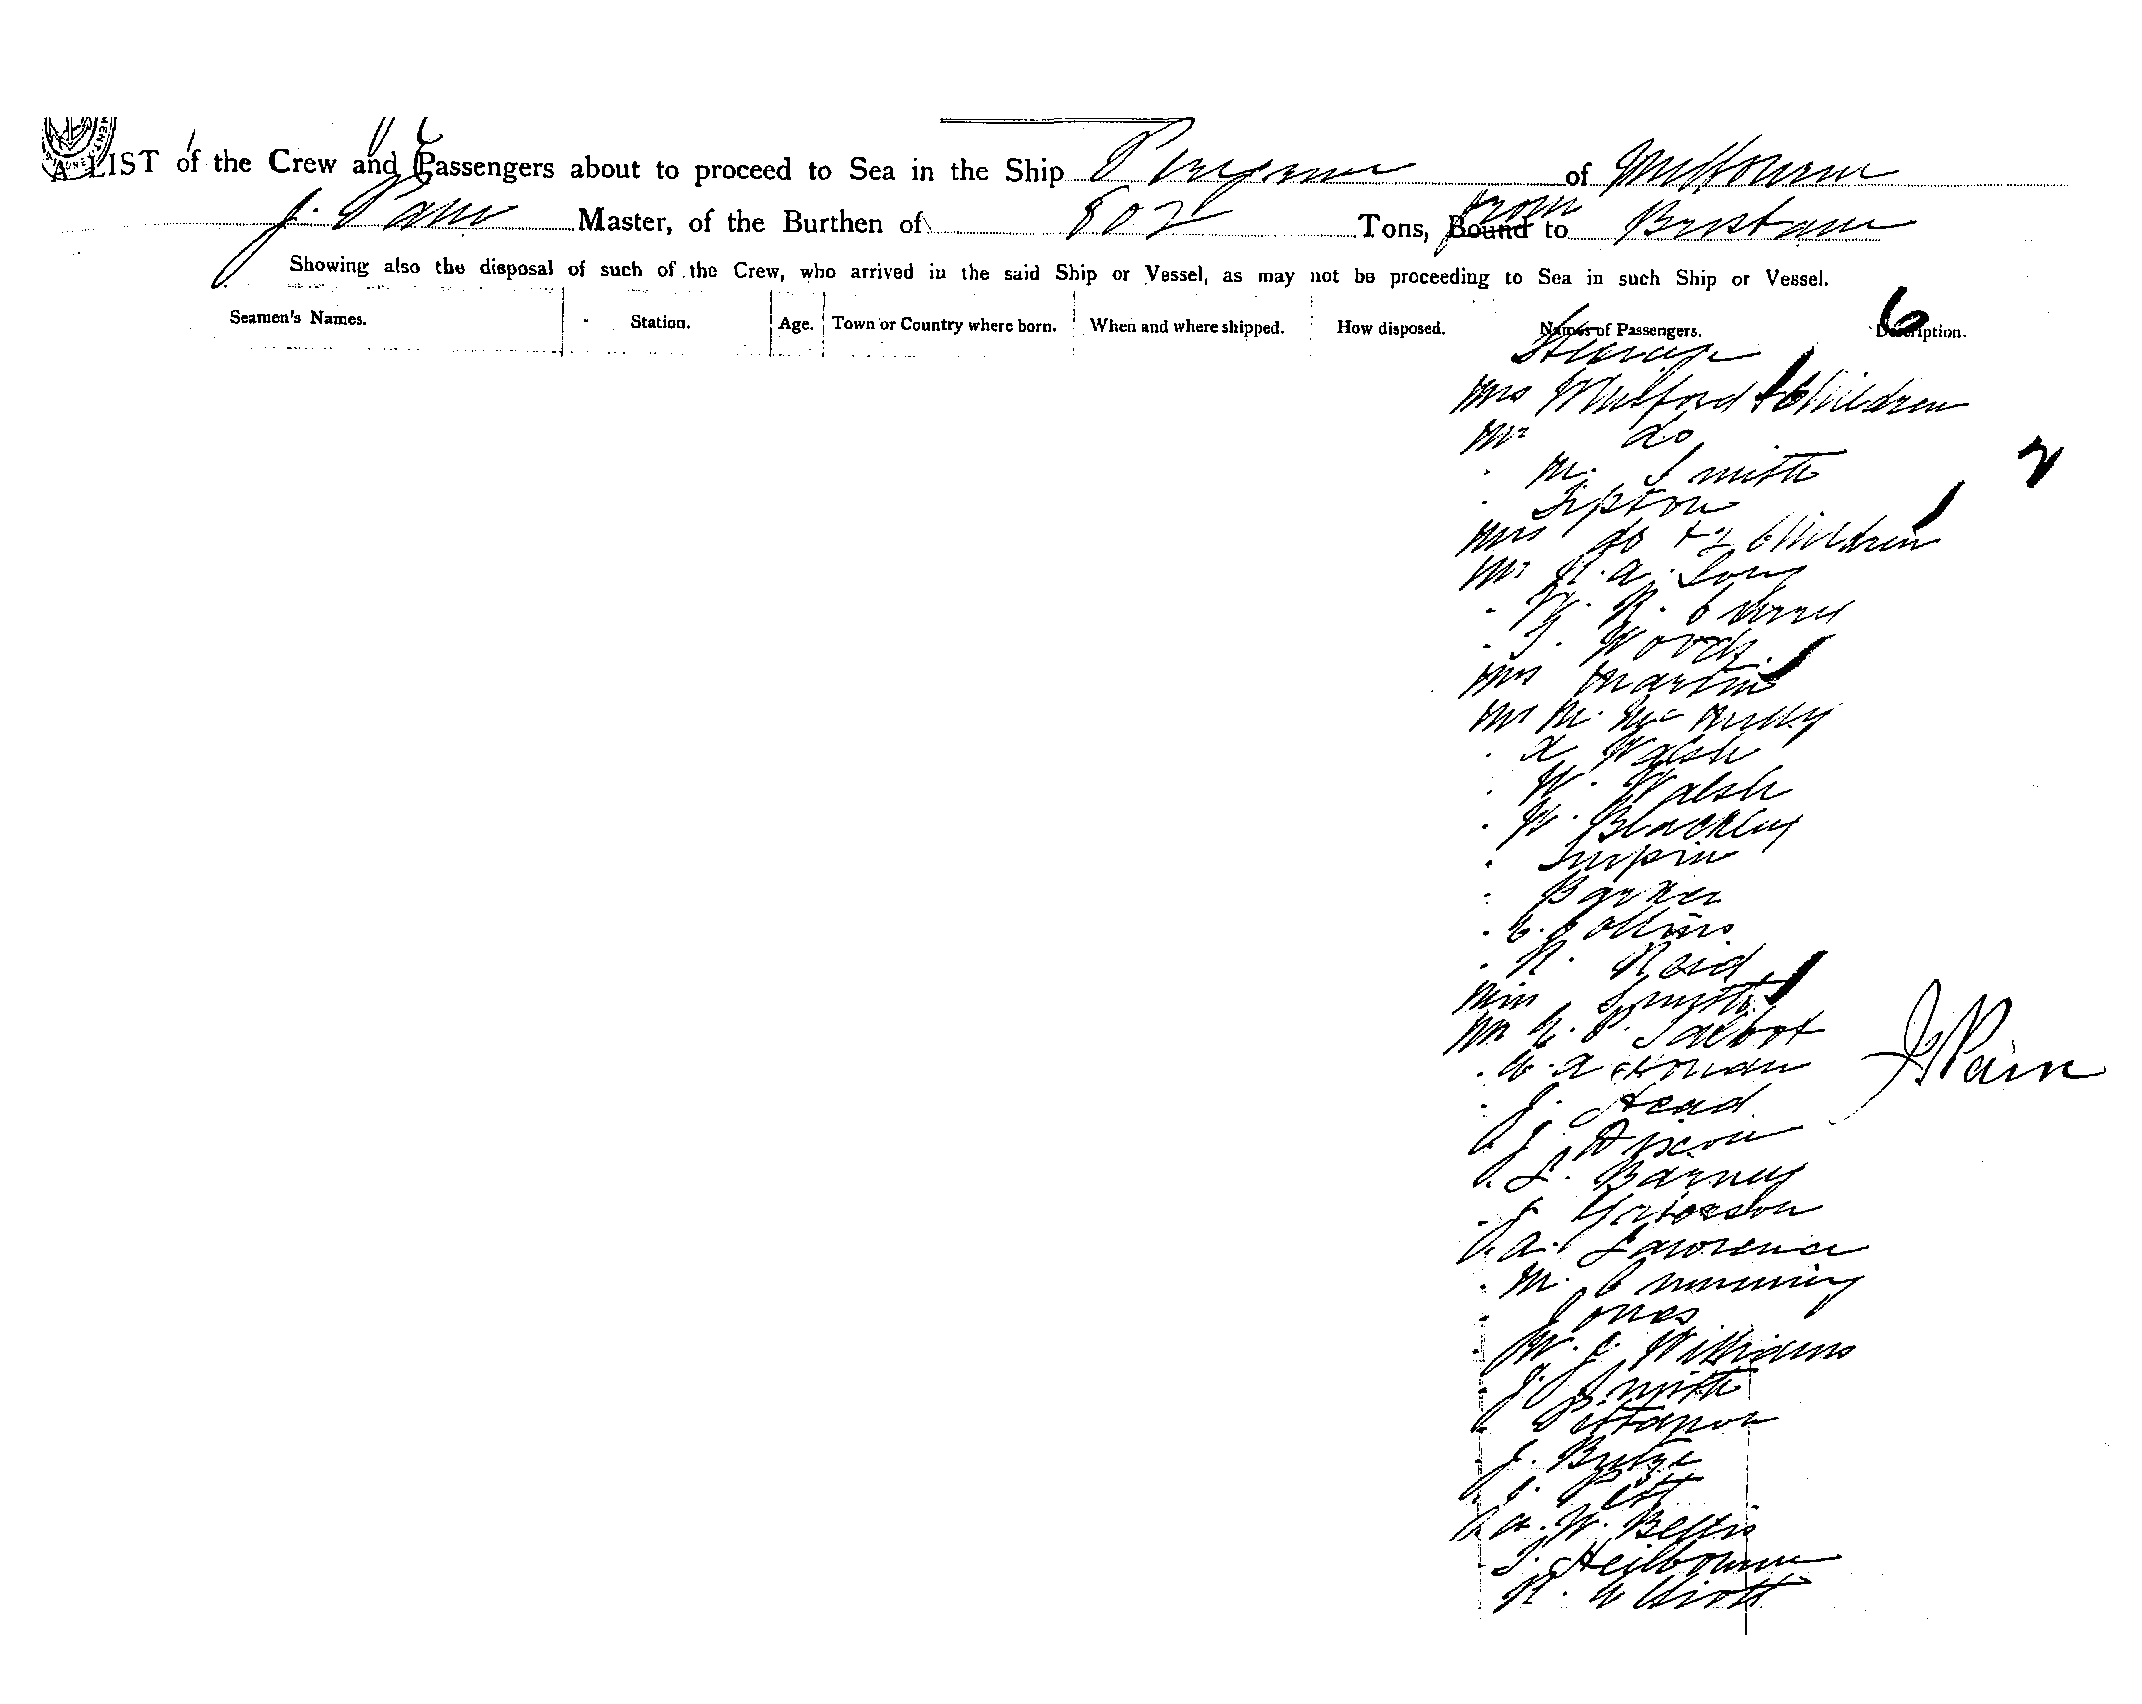 A LIST of the Crew and Passengers about to proceed to Sea in the Ship of Melbourne
J. Pain Master, of the Burthen of 802 Tons, Bound from to Brisbane
Showing also the disposal of such of the Crew, who arrived in the said Ship or Vessel, as may not be proceeding to Sea in such Ship or Vessel.
Seamen's Names. Station. Age. Town or Country where born. When and where shipped. How disposed. Names of Passengers. Description.
6
Steerage
Mrs Mulford & Children
Mr do
2
. M. Smith
. Tipton
Mrs do + 2 Children
Mr R. A. Long
. W. R.
. T. Woods
Mrs Martin
Mr M. Mc
. A Walsh
. W. Walsh
. W. Blackley
. Turpin
. Barker
. C. Collins
. R. Reid
Miss Smith
Mr Talbot
. A
. J. Head
. J. Dixon
. L. Barney
. J. Grierson
. A. Lawrence
. M. Cumming
. Jones
. W. J. Williams
. J. Smith
.
. J.
. J. Pitt
. W. Bettis
. T. Heilbourne
R. Elliott
J Pain